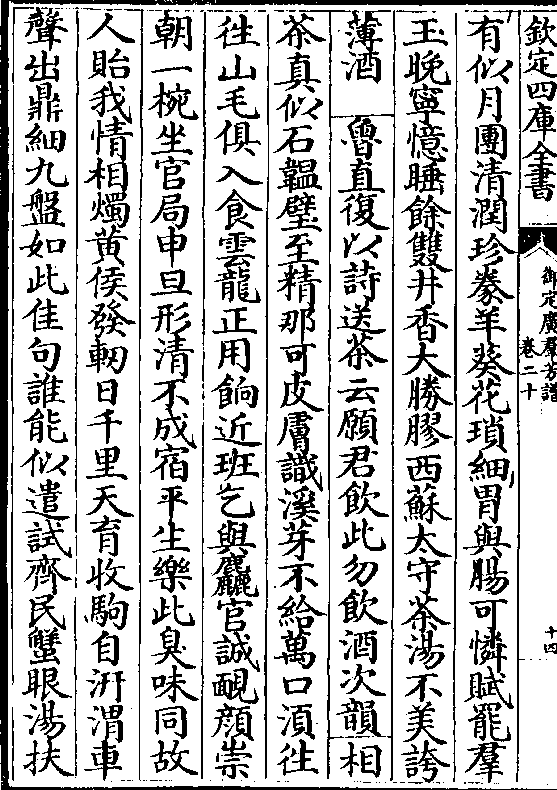 欽定四庫全書
御定廣羣芳譜
卷二十
十四
有似月團清潤珍豢羊葵花瑣細胃與腸可憐賦罷羣
玉晚寧憶睡餘雙井香大勝膠西蘇太守茶湯不美誇
薄酒　魯直復以詩送茶云願君飲此勿飲酒次韻　相
茶真似石韞璧至精那可皮膚識溪芽不給萬口須往
往山毛俱入食雲龍正用餉近班乞與麤官誠靦顔崇
朝一椀坐官局申旦形清不成宿平生樂此臭味同故
人貽我情相燭黄侯發軔日千里天育收駒自汧渭車
聲出鼎細九盤如此佳句誰能似遣試齊民蟹眼湯扶